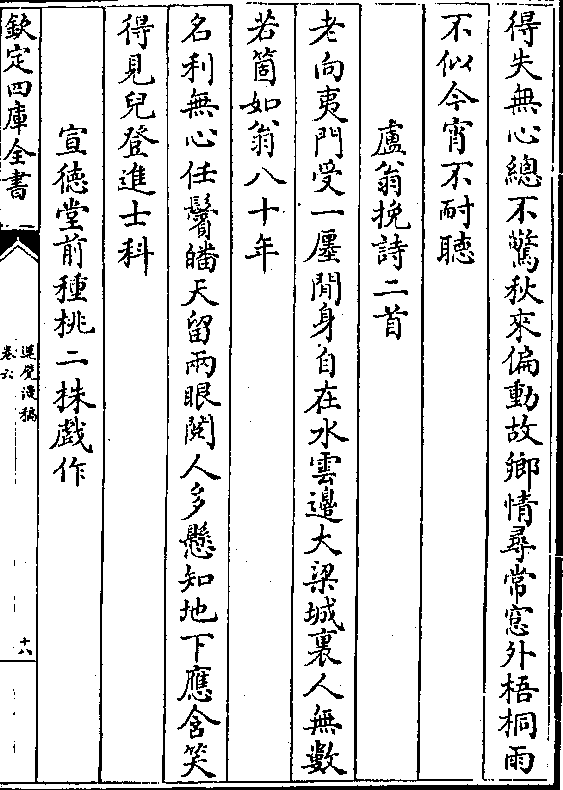 得失無心總不驚秋來偏動故鄉情尋常窓外梧桐雨
不似今宵不耐聽
盧翁挽詩二首
老向夷門受一廛閒身自在水雲邊大梁城裏人無數
若箇如翁八十年
名利無心任鬢皤天留兩眼閱人多懸知地下應含笑
得見兒登進士科
宣德堂前種桃二株戲作
欽定四庫全書
卷六
十八